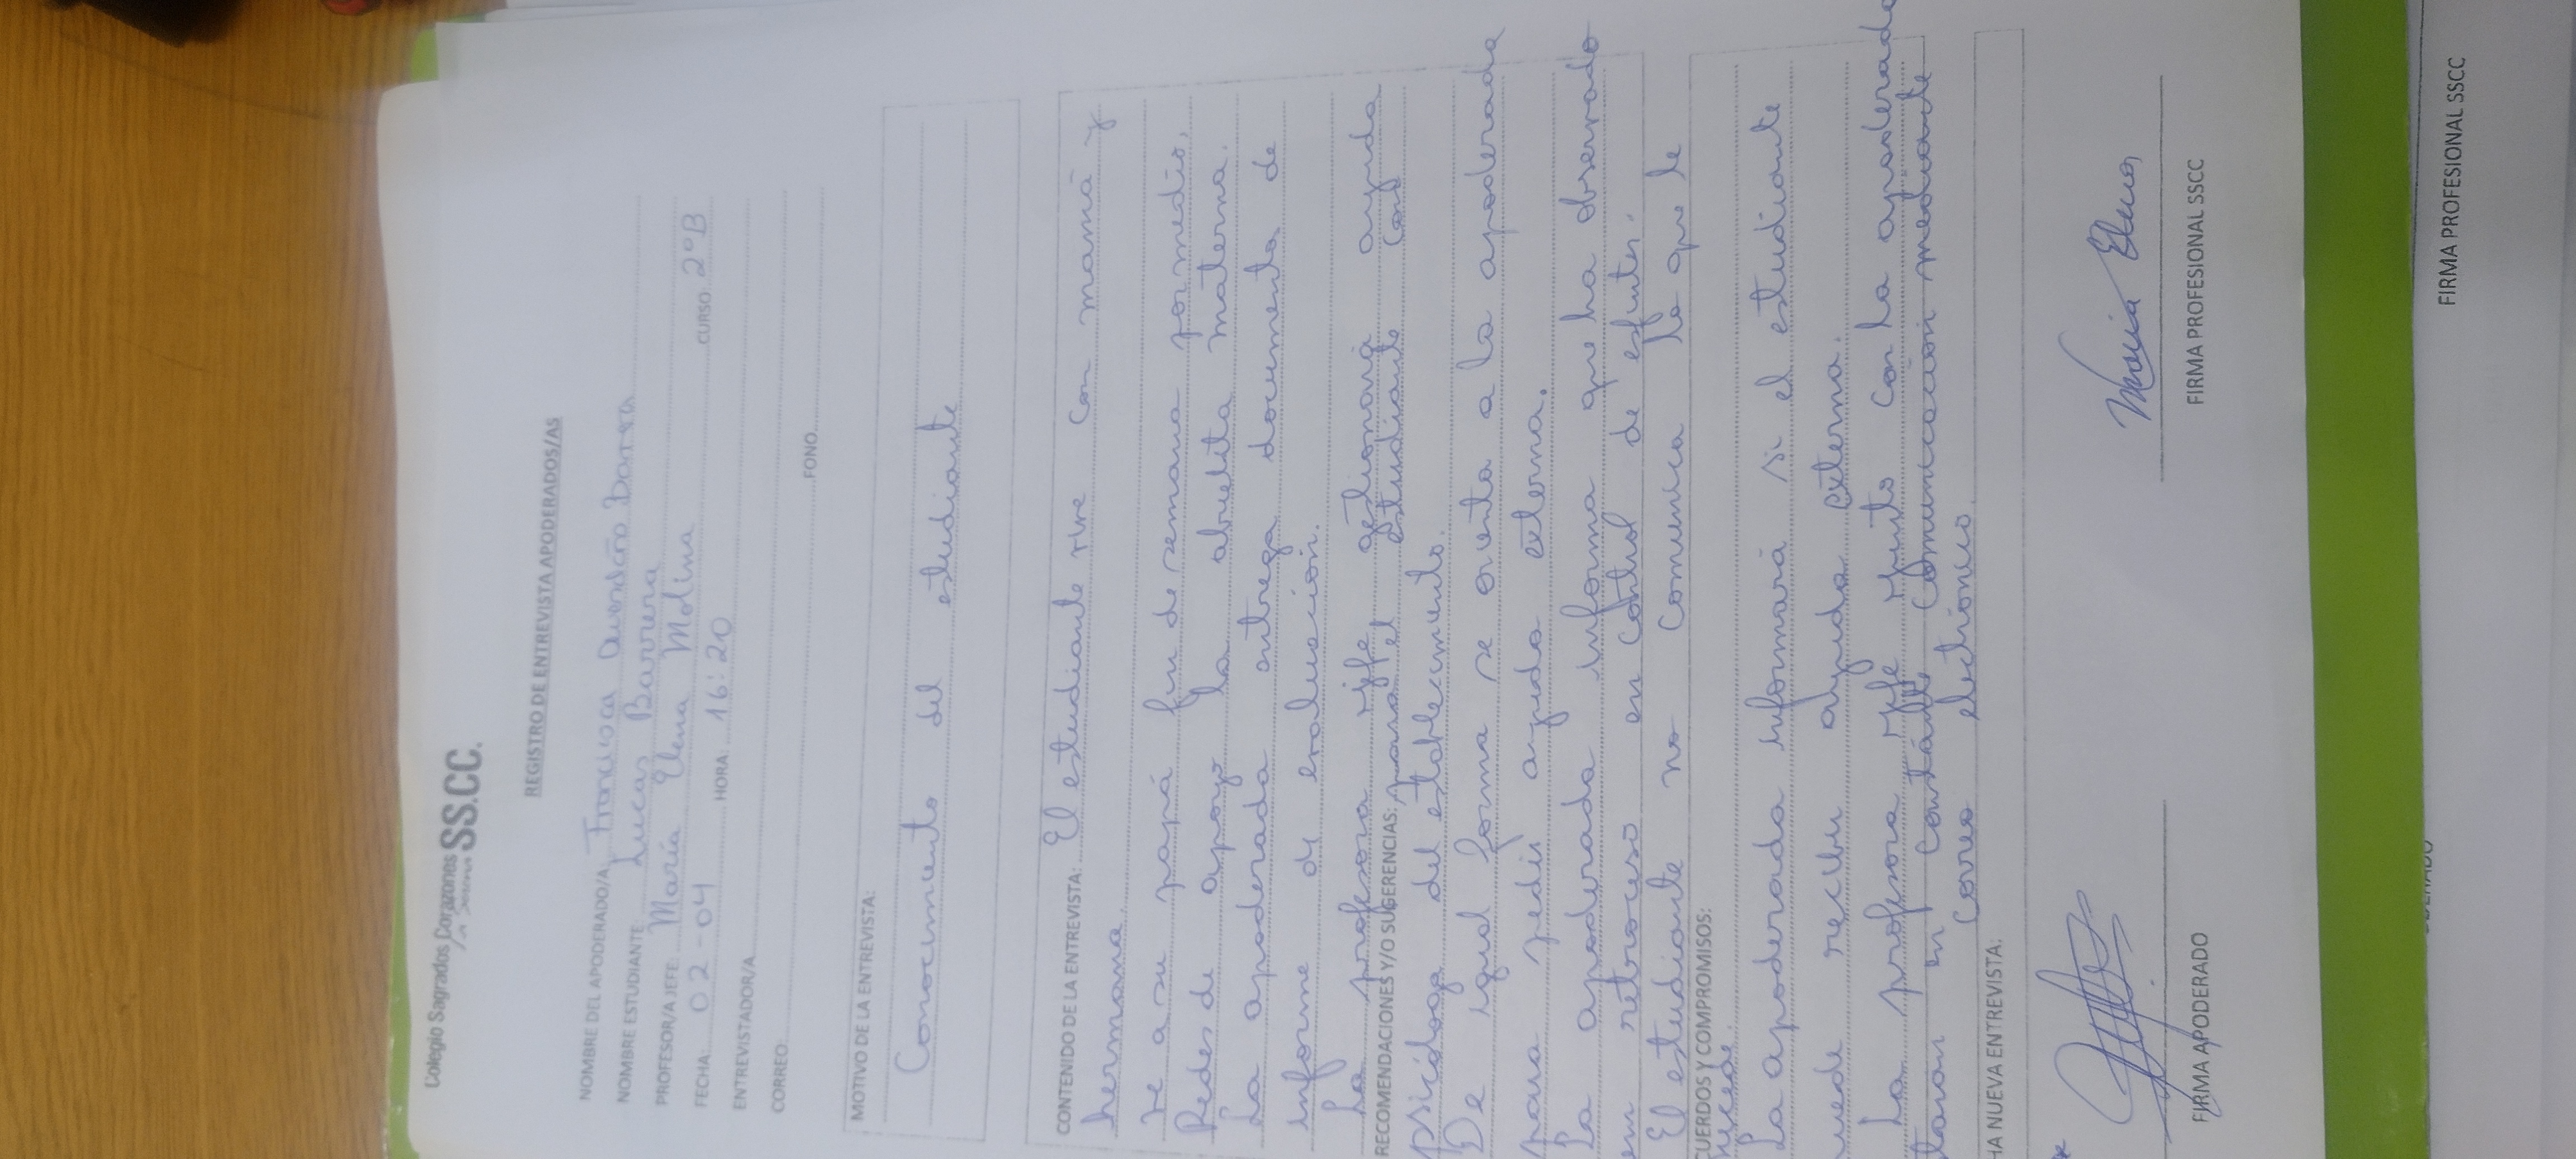 Colegio Sagrados Corazones
SS.CC.
REGISTRO DE ENTREVISTA APODERADOS/AS
NOMBRE DEL APODERADO/A: Francisca Barrera
NOMBRE ESTUDIANTE: Lucas Barrera
PROFESOR/A JEFE: María Elena Molina
FECHA: 02-04 HORA: 16:20 CURSO 2°B
ENTREVISTADOR/A
CORREO: FONO
MOTIVO DE LA ENTREVISTA:
Conocimiento del estudiante
CONTENIDO DE LA ENTREVISTA: El estudiante vive con mamá y
hermana.
Ve a su papá fin de semana por medio.
Redes de apoyo la abuelita materna.
La apoderada entrega documento de
informe de evaluación.
La profesora jefe gestionará ayuda
RECOMENDACIONES Y/O SUGERENCIAS: para el estudiante con
psicóloga del establecimiento.
De igual forma se orienta a la apoderada
para pedir ayuda externa.
La apoderada informa que ha observado
un retroceso en control de esfínter.
El estudiante no comunica lo que le
CUERDOS Y COMPROMISOS:
sucede.
La apoderada informará si el estudiante
uede recibir ayuda externa.
La profesora jefe junto con la apoderada
taran en contacto comunicación mediante
correo electrónico
HA NUEVA ENTREVISTA:
FIRMA APODERADO
María Elena
FIRMA PROFESIONAL SSCC
FIRMA PROFESIONAL SSCC